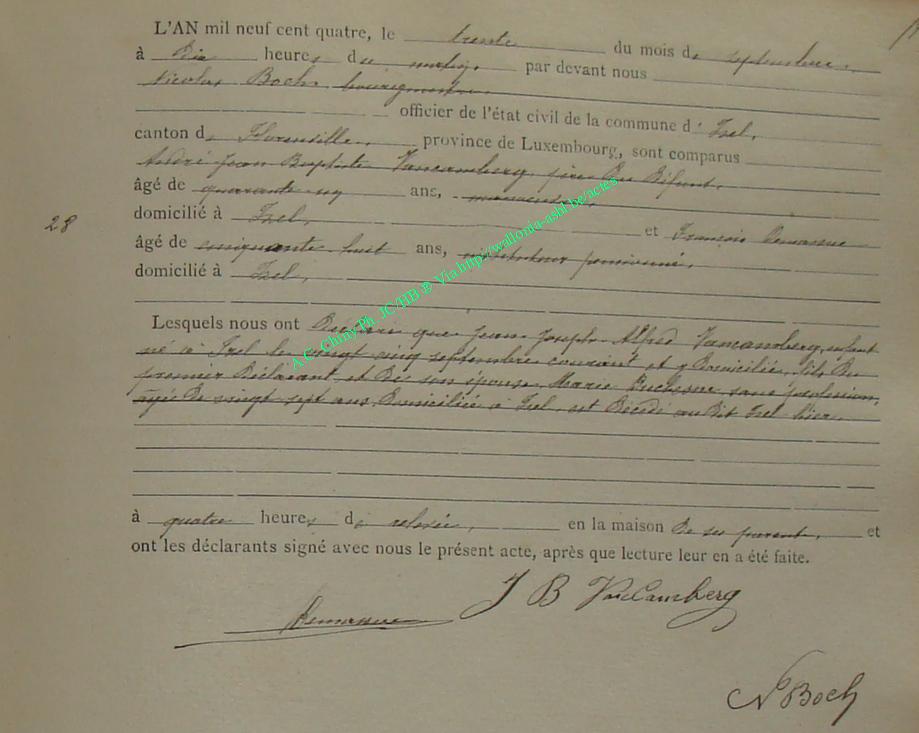 L'AN mil neuf cent quatre, le trente du mois de septembre,
à Dix heures du matin, par devant nous
Nicolas Boch, bourgmestre
officier de l'état civil de la commune d'Izel,
canton de Florenville, province de Luxembourg, sont comparus
André Jean Baptiste Vancamberg, père du défunt,
âgé de quarante un ans,
domicilié à Izel, et François Demasue
28
âgé de cinquante huit ans, instituteur pensionné,
domicilié à Izel,
Lesquels nous ont Déclaré que Jean Joseph Alfred Vancamberg, enfant
né à Izel le vingt cinq septembre courant et y Domicilié, fils du
premier Déclarant et de son épouse Marie Duchesne sans profession,
âgée de vingt sept ans Domiciliée à Izel, est Décédé audit Izel hier
à quatre heures de relevée, en la maison de ses parents, et
ont les déclarants signé avec nous le présent acte, après que lecture leur en a été faite.
J B VanCamberg
N Boch
A.C. Chiny Ph JC/HB @ Via http/wallonia-asbl.be/actes